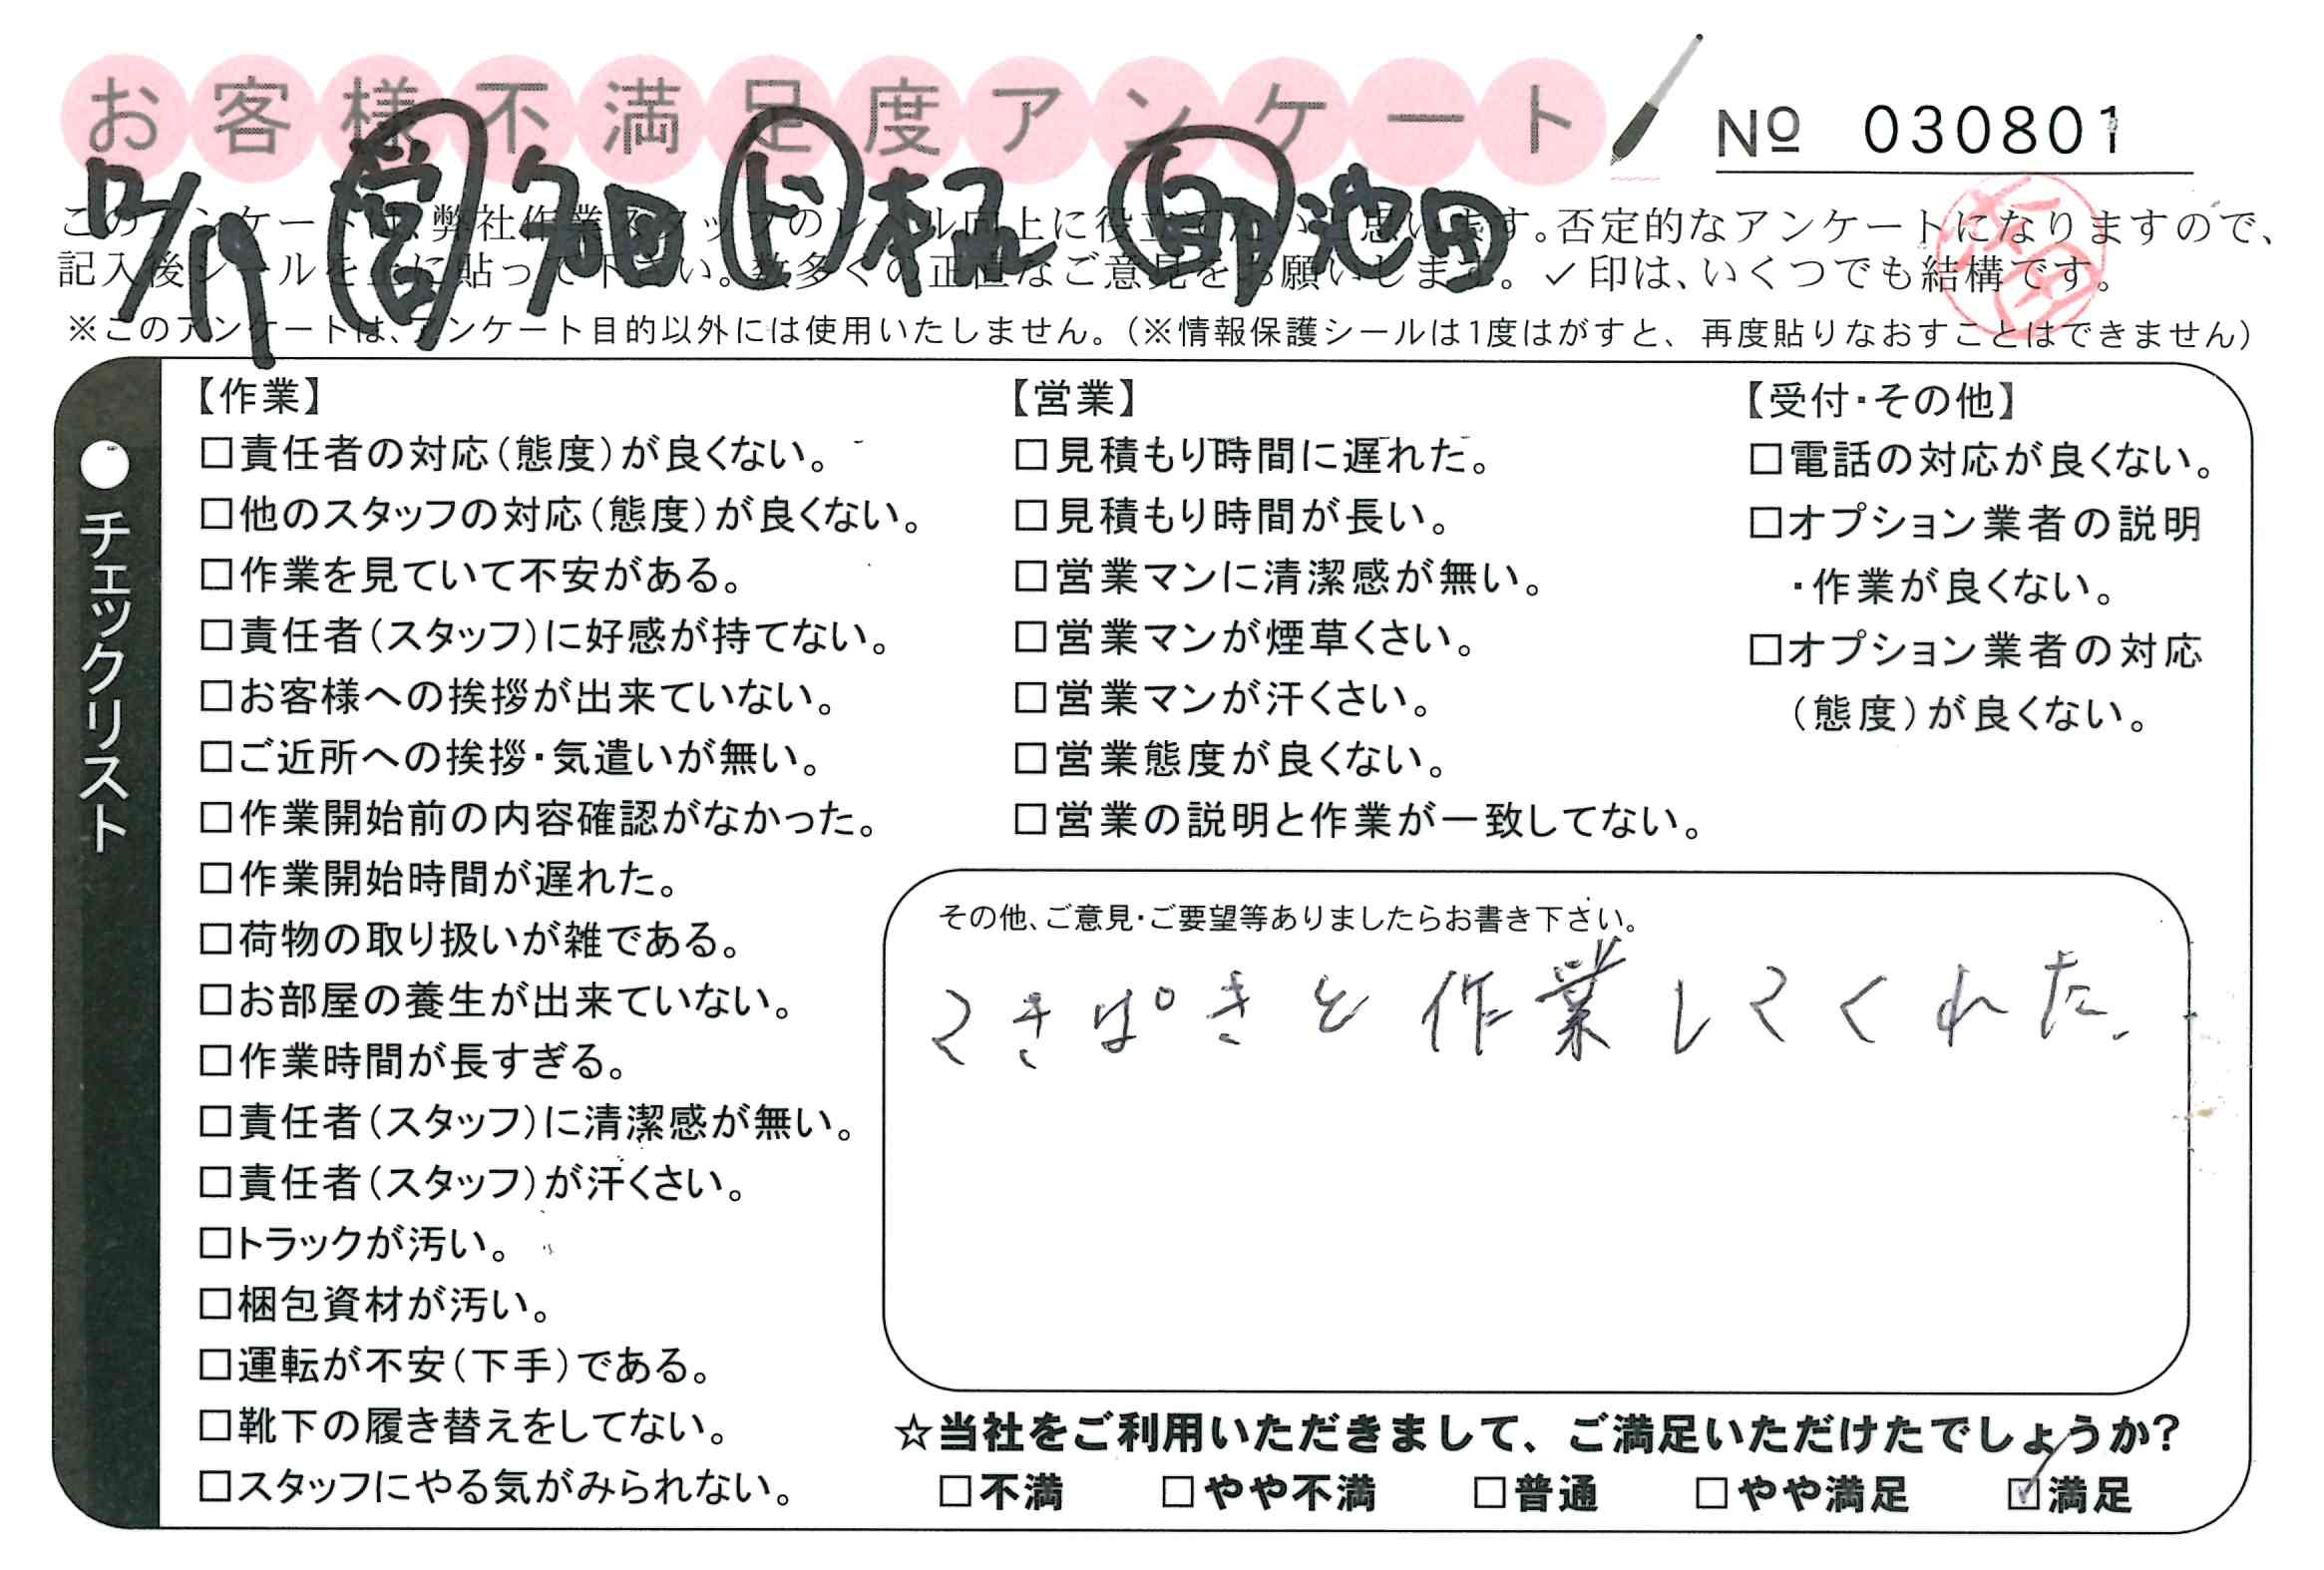 お客様不満足度アンケート
№ 030801
12/19 営 畑 ド 梶 助 池田
このアンケートは、弊社作業スタッフのレベル向上に役立てたいと思います。否定的なアンケートになりますので、
記入後シールを上に貼って下さい。数多くの正直なご意見をお願いします。✓印は、いくつでも結構です。
※このアンケートは、アンケート目的以外には使用いたしません。（※情報保護シールは1度はがすと、再度貼りなおすことはできません）
●チェックリスト
【作業】
□責任者の対応（態度）が良くない。
□他のスタッフの対応（態度）が良くない。
□作業を見ていて不安がある。
□責任者（スタッフ）に好感が持てない。
□お客様への挨拶が出来ていない。
□ご近所への挨拶・気遣いが無い。
□作業開始前の内容確認がなかった。
□作業開始時間が遅れた。
□荷物の取り扱いが雑である。
□お部屋の養生が出来ていない。
□作業時間が長すぎる。
□責任者（スタッフ）に清潔感が無い。
□責任者（スタッフ）が汗くさい。
□トラックが汚い。
□梱包資材が汚い。
□運転が不安（下手）である。
□靴下の履き替えをしてない。
□スタッフにやる気がみられない。
【営業】
□見積もり時間に遅れた。
□見積もり時間が長い。
□営業マンに清潔感が無い。
□営業マンが煙草くさい。
□営業マンが汗くさい。
□営業態度が良くない。
□営業の説明と作業が一致してない。
【受付・その他】
□電話の対応が良くない。
□オプション業者の説明
・作業が良くない。
□オプション業者の対応
（態度）が良くない。
その他、ご意見・ご要望等ありましたらお書き下さい。
てきぱきと作業してくれた。
☆当社をご利用いただきまして、ご満足いただけたでしょうか？
□不満 □やや不満 □普通 □やや満足 ☑満足